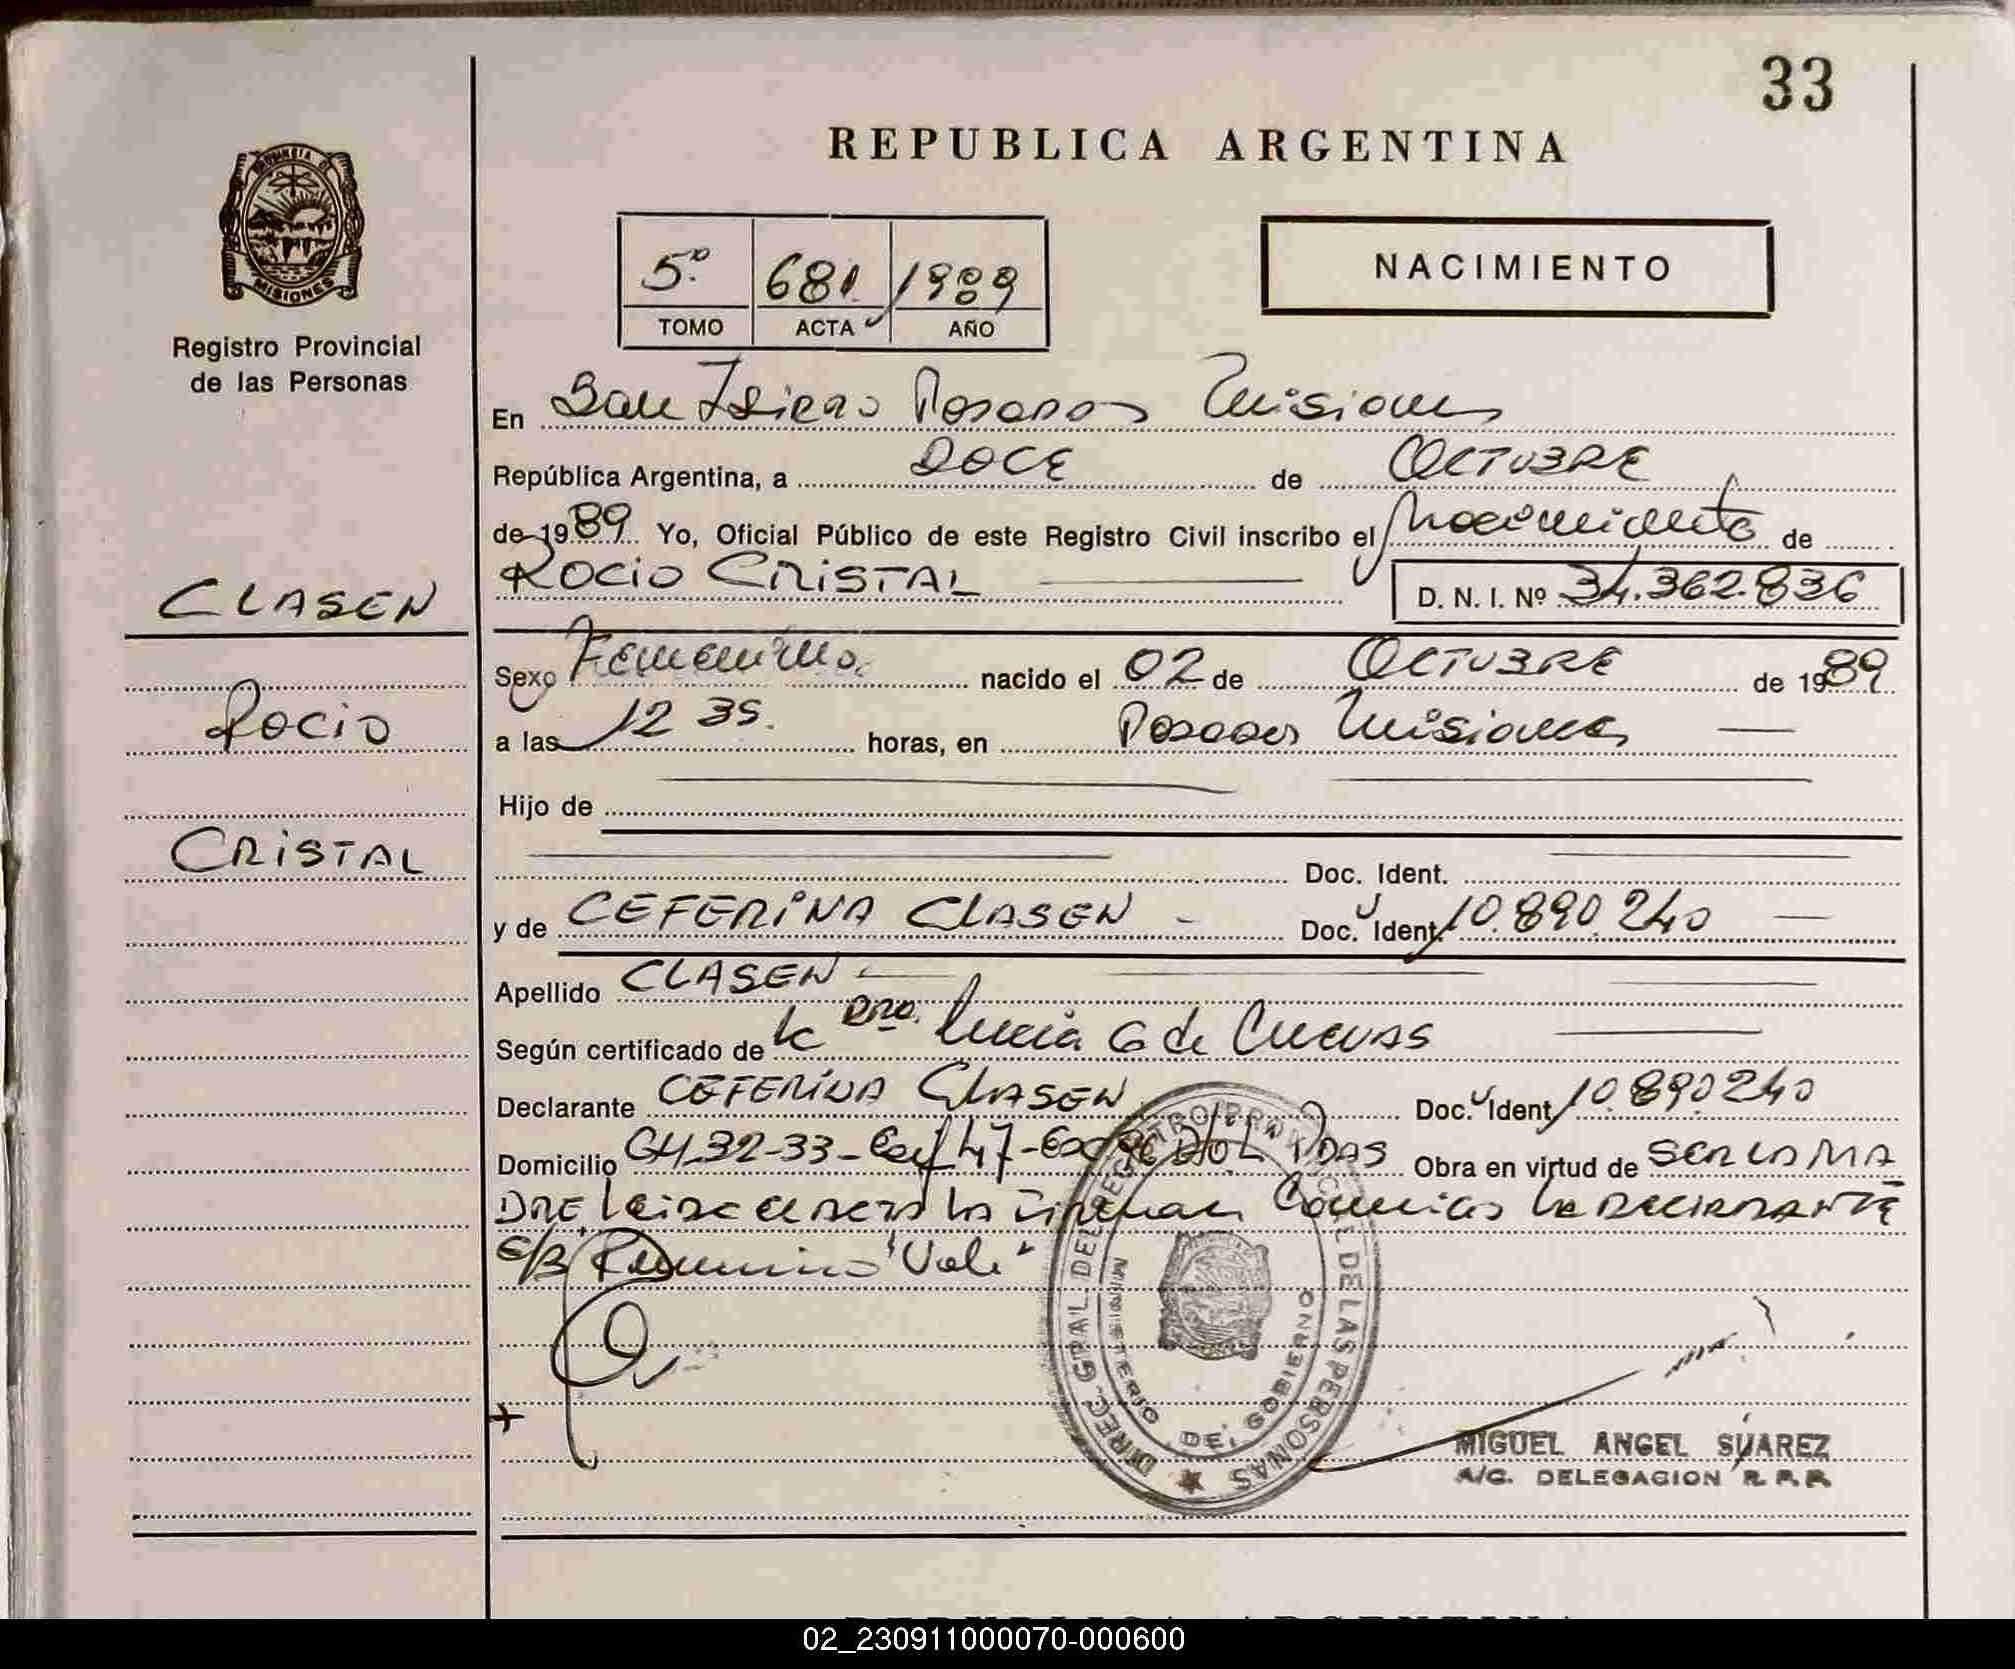 33
REPUBLICA ARGENTINA
PROVINCIA DE
MISIONES
Registro Provincial
de las Personas
5º 681 1989
TOMO ACTA AÑO
NACIMIENTO
En San Isidro Posadas Misiones
República Argentina, a DOCE de OCTUBRE
de 1989 Yo, Oficial Público de este Registro Civil inscribo el Nacimiento de
ROCIO CRISTAL D. N. I. Nº 34.362.836
CLASEN
Sexo Femenino nacido el 02 de OCTUBRE de 1989
ROCIO
a las 12 35. horas, en Posadas Misiones
Hijo de
CRISTAL
Doc. Ident.
y de CEFERINA CLASEN Doc. Ident. 10.890.240
Apellido CLASEN
Según certificado de la Dra. Lucia G de Cuevas
Declarante CEFERINA CLASEN Doc. Ident. 10.890.240
Domicilio 32-33 47 PDAS Obra en virtud de SER LA MA
DRE Leida el acta la firman Conmigo la DECLARANTE
"Vale"
DIREC. GRAL. DEL REGISTRO PROVINCIAL DE LAS PERSONAS
MINISTERIO DE GOBIERNO
MIGUEL ANGEL SUAREZ
A/C. DELEGACION R. P. P.
REPUBLICA ARGENTINA
02_230911000070-000600